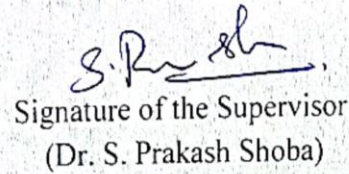 Signature of the Supervisor
(Dr. S. Prakash Shoba)